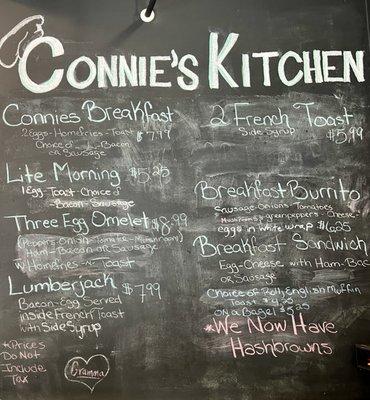 Connie's Kitchen
Connies Breakfast
2 Eggs-Homefries-Toast $7.49
Choice of Bacon
or Sausage
Lite Morning $5.25
1 Egg-Toast Choice of
Bacon-Sausage
Three Egg Omelet $8.99
(Peppers-Onion-Tomatoe-Mushroom)
Ham-Bacon-or Sausage
w/Homefries-n-Toast
Lumberjack $7.99
Bacon-Egg Served
inside French Toast
with Side Syrup
*Prices
Do Not
Include
Tax
Gramma
2 French Toast
Side Syrup $5.99
Breakfast Burrito
Sausage-Onions-Tomatoes
Mushrooms-greenpeppers-Cheese-
eggs in white wrap $6.25
Breakfast Sandwich
Egg-Cheese with Ham-Bac
or Sausage
Choice of Roll, English Muffin
Toast
on a Bagel
*We Now Have
Hashbrowns